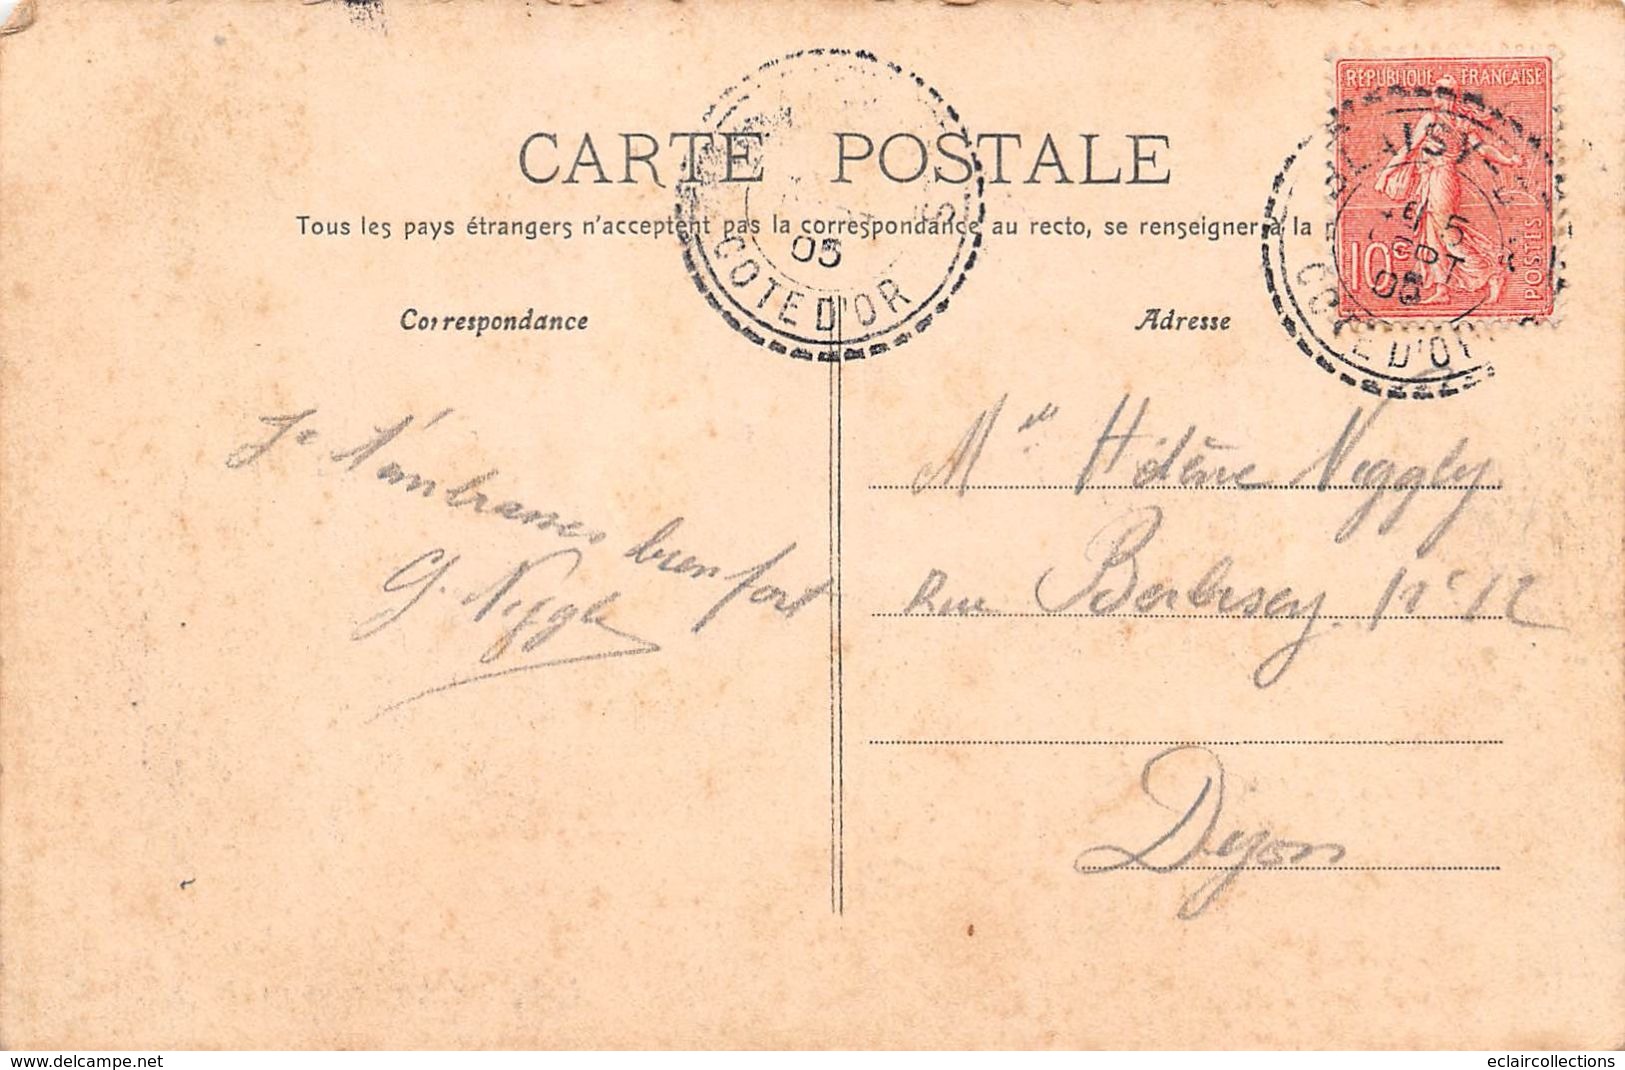 RÉPUBLIQUE FRANÇAISE
10c
POSTES
BLAISY-
5
OCT
05
COTE D'OR
05
COTE D'OR
CARTE POSTALE
Tous les pays étrangers n'acceptent pas la correspondance au recto, se renseigner à la
Correspondance
Adresse
Je t'embrasses bien fort
G. Neggly
Mlle Hélène Neggly
Rue Berbisey. N° 12
Dijon
www.delcampe.net
eclaircollections